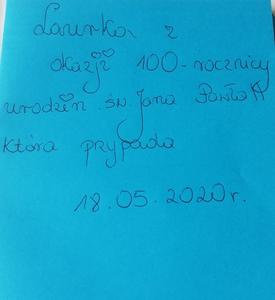 Laurka z
okazji 100-rocznicy
urodzin św. Jana Pawła II
która przypada
18.05.2020r.